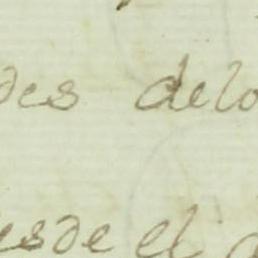 des delo
esde el